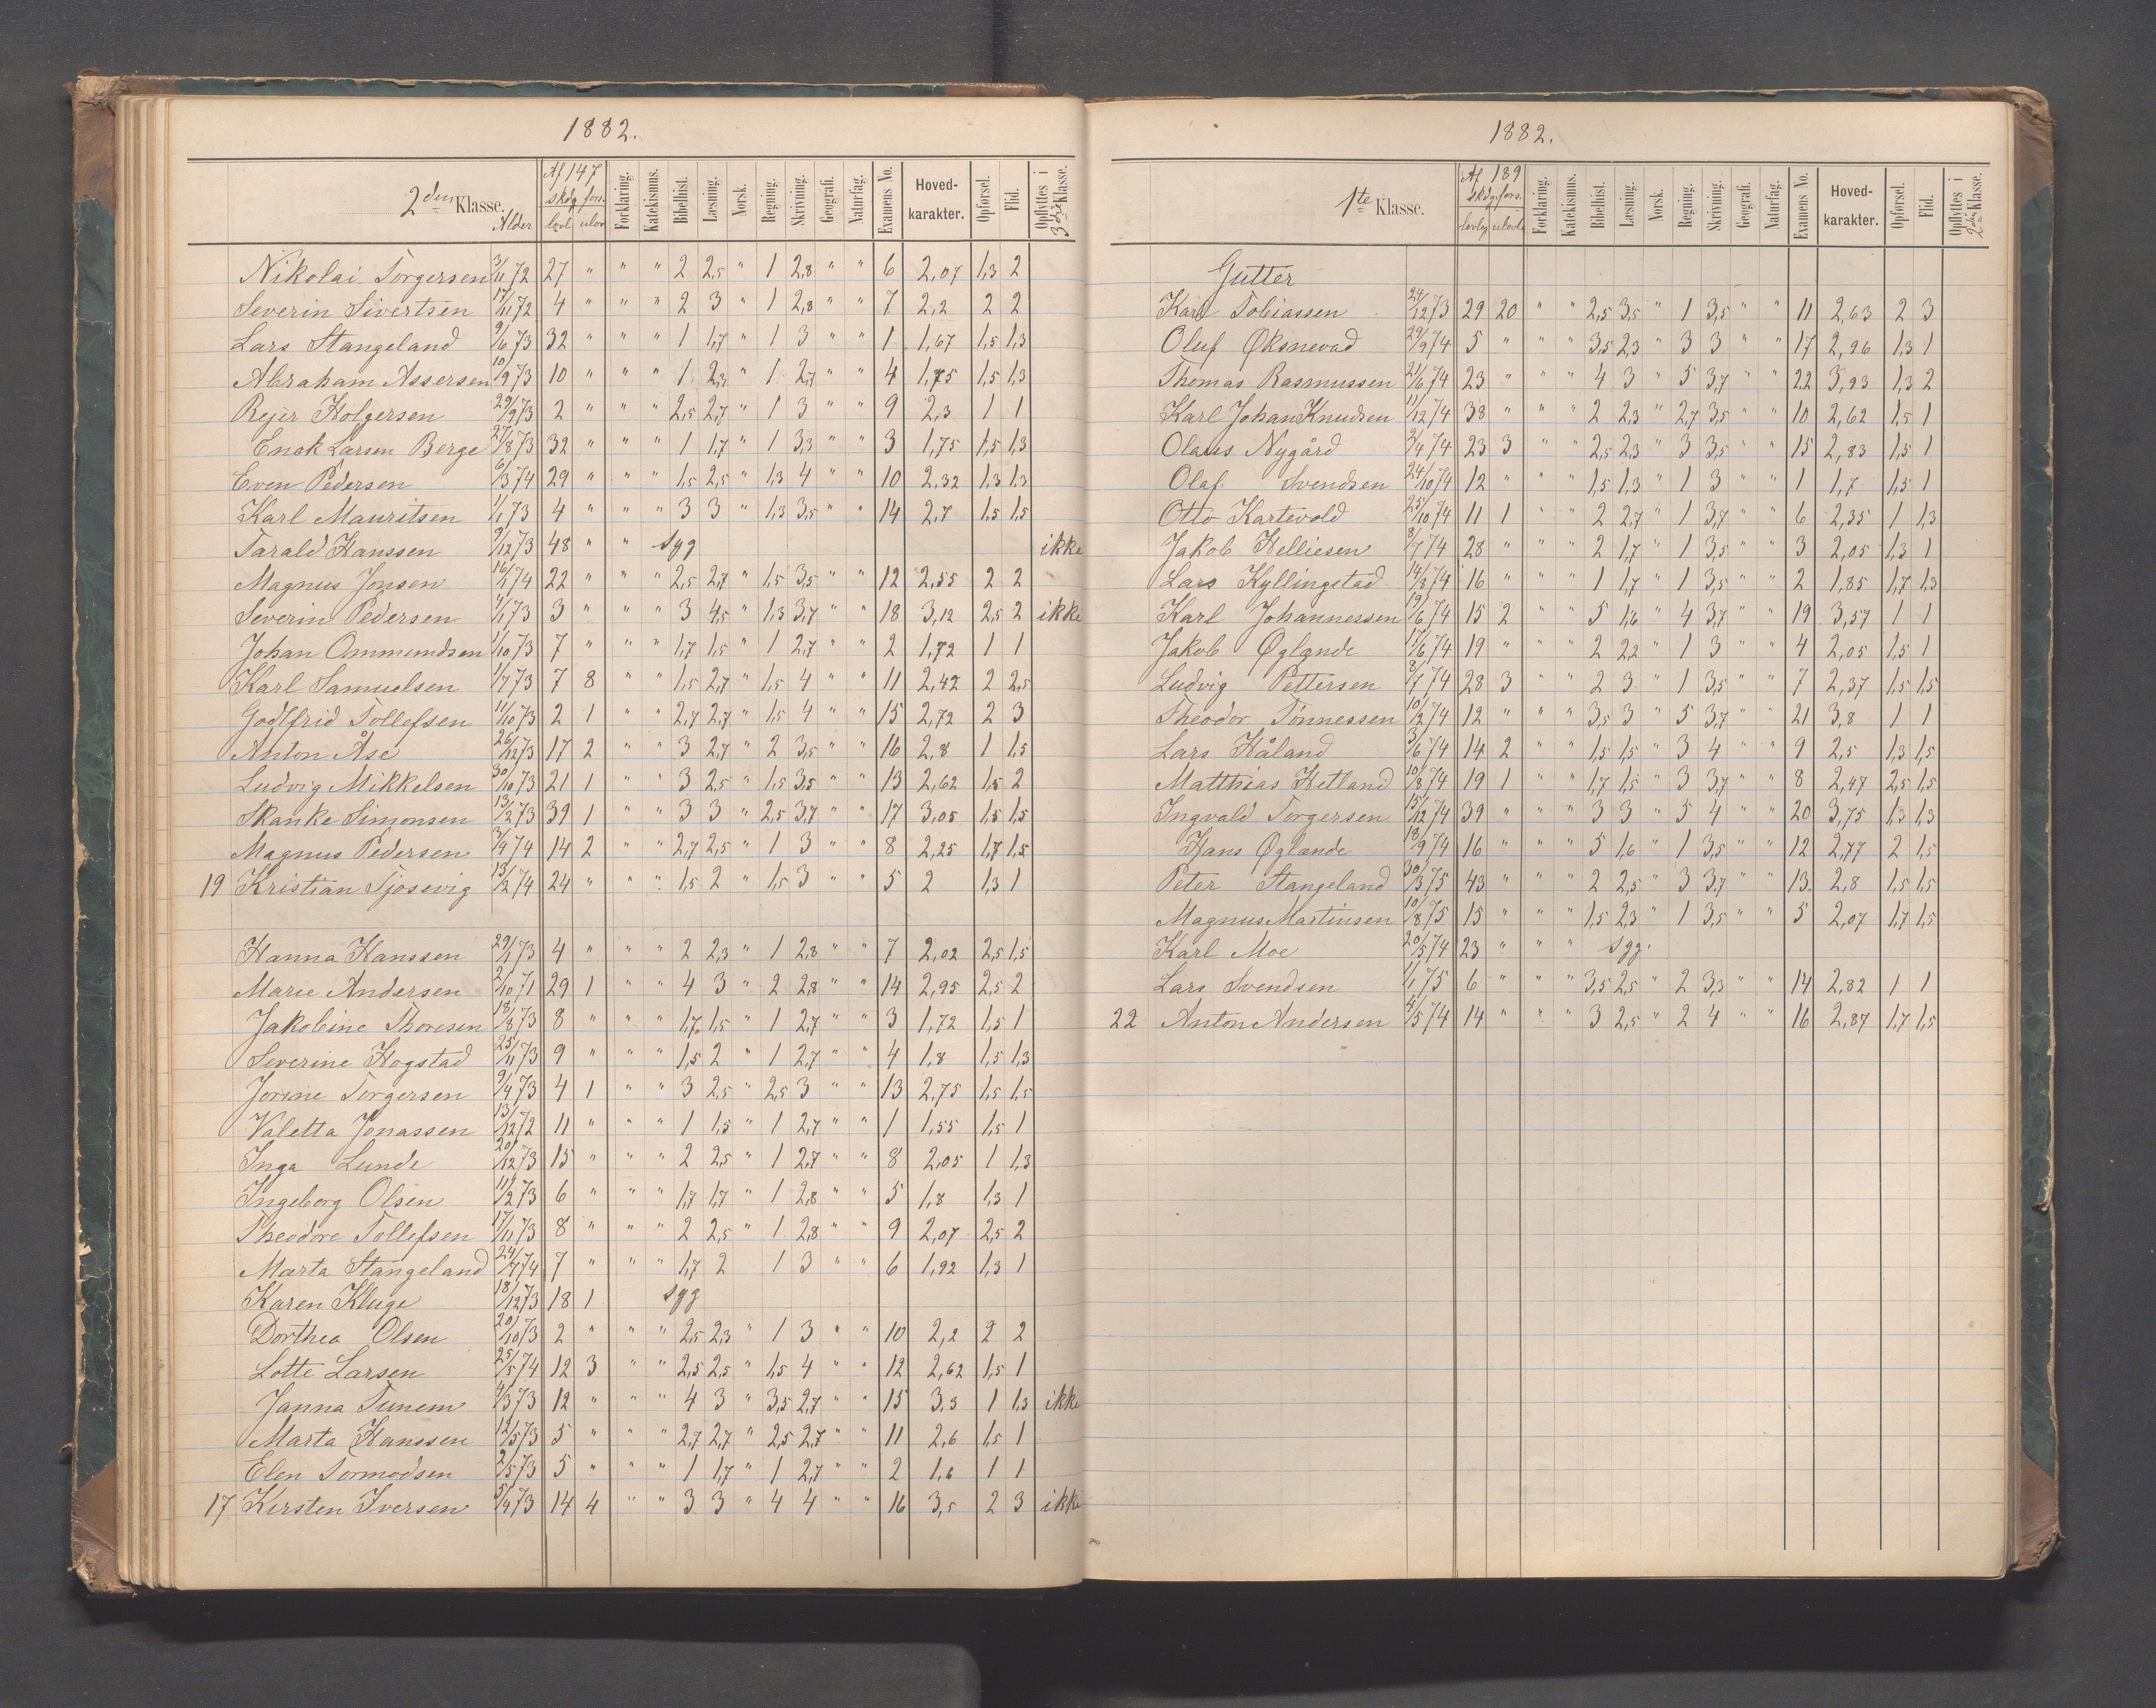 1882.
2den Klasse. Alder Af 147 skdg fors. lovl ulov Forklaring. Katekismus. Bibelhist. Læsning. Norsk. Regning. Skrivning. Geografi. Naturfag. Examens No. Hoved-karakter. Opførsel. Flid. Opflyttes i 3die Klasse.
Nikolai Torgersen 3/11 72 27 " " " 2 2,5 " 1 2,8 " " 6 2,07 1,3 2
Severin Sivertsen 17/11 72 4 " " " 2 3 " 1 2,8 " " 7 2,2 2 2
Lars Stangeland 9/6 73 32 " " " 1 1,7 " 1 3 " " 1 1,67 1,5 1,3
Abraham Assersen 10/9 73 10 " " " 1 2,3 " 1 2,7 " " 4 1,75 1,5 1,3
Rejer Holgersen 29/9 73 2 " " " 2,5 2,7 " 1 3 " " 9 2,3 1 1
Enok Larsen Berge 27/8 73 32 " " " 1 1,7 " 1 3,3 " " 3 1,75 1,5 1,3
Even Pedersen 6/3 74 29 " " " 1,5 2,5 " 1,3 4 " " 10 2,32 1,3 1,3
Karl Mauritsen 1/1 73 4 " " " 3 3 " 1,3 3,5 " " 14 2,7 1,5 1,5
Tarald Hanssen 9/12 73 48 " " syg ikke
Magnus Jonsen 16/1 74 22 " " " 2,5 2,7 " 1,5 3,5 " " 12 2,55 2 2
Severin Pedersen 4/1 73 3 " " " 3 4,5 " 1,3 3,7 " " 18 3,12 2,5 2 ikke
Johan Ommundsen 1/10 73 7 " " " 1,7 1,5 " 1 2,7 " " 2 1,72 1 1
Karl Samuelsen 1/7 73 7 8 " " 1,5 2,7 " 1,5 4 " " 11 2,42 2 2,5
Godtfrid Tollefsen 11/10 73 2 1 " " 2,7 2,7 " 1,5 4 " " 15 2,72 2 3
Anton Åse 26/12 73 17 2 " " 3 2,7 " 2 3,5 " " 16 2,8 1 1,5
Ludvig Mikkelsen 30/10 73 21 1 " " 3 2,5 " 1,5 3,5 " " 13 2,62 1,5 2
Skanke Simonsen 13/2 73 39 1 " " 3 3 " 2,5 3,7 " " 17 3,05 1,5 1,5
Magnus Pedersen 3/4 74 14 2 " " 2,7 2,5 " 1 3 " " 8 2,25 1,7 1,5
19 Kristian Tjosevig 13/2 74 24 " " " 1,5 2 " 1,5 3 " " 5 2 1,3 1
Hanna Hanssen 29/1 73 4 " " " 2 2,3 " 1 2,8 " " 7 2,02 2,5 1,5
Marie Andersen 2/10 71 29 1 " " 4 3 " 2 2,8 " " 14 2,95 2,5 2
Jakobine Thoresen 18/8 73 8 " " " 1,7 1,5 " 1 2,7 " " 3 1,72 1,5 1
Severine Hogstad 25/11 73 9 " " " 1,5 2 " 1 2,7 " " 4 1,8 1,5 1,3
Jorine Torgersen 9/4 73 4 1 " " 3 2,5 " 2,5 3 " " 13 2,75 1,5 1,5
Valetta Jonassen 13/12 72 11 " " " 1 1,5 " 1 2,7 " " 1 1,55 1,5 1
Inga Lunde 20/12 73 15 " " " 2 2,5 " 1 2,7 " " 8 2,05 1 1,3
Ingeborg Olsen 11/2 73 6 " " " 1,7 1,7 " 1 2,8 " " 5 1,8 1,3 1
Theodore Tollefsen 17/11 73 8 " " " 2 2,5 " 1 2,8 " " 9 2,07 2,5 2
Marta Stangeland 24/7 74 7 " " " 1,7 2 1 3 " " 6 1,92 1,3 1
Karen Kluge 18/12 73 18 1 syg
Dorthea Olsen 20/10 73 2 " " " 2,5 2,3 " 1 3 " " 10 2,2 2 2
Lotte Larsen 25/5 74 12 3 " " 2,5 2,5 " 1,5 4 " " 12 2,62 1,5 1
Janna Tunem 4/3 73 12 " " " 4 3 " 3,5 2,7 " " 15 3,3 1 1,3 ikke
Marta Hanssen 12/5 73 5 " " " 2,7 2,7 " 2,5 2,7 " " 11 2,6 1,5 1
Elen Tormodsen 2/5 73 5 " " " 1 1,7 " 1 2,7 " " 2 1,6 1 1
17 Kirsten Iversen 5/4 73 14 4 " " 3 3 " 4 4 " " 16 3,5 2 3 ikke
1882.
1te Klasse. Af 189 skdg. fors. lovlig ulovl Forklaring. Katekismus. Bibelhist. Læsning. Norsk. Regning. Skrivning. Geografi. Naturfag. Examens No. Hoved-karakter. Opførsel. Flid. Opflyttes i 2den Klasse.
Gutter
Karl Tobiassen 24/12 73 29 20 " " 2,5 3,5 " 1 3,5 " " 11 2,63 2 3
Oluf Øksnevad 29/9 74 5 " " " 3,5 2,3 " 3 3 " " 17 2,96 1,3 1
Thomas Rasmussen 21/6 74 23 " " " 4 3 " 5 3,7 " " 22 3,93 1,3 2
Karl Johan Knudsen 11/12 74 38 " " " 2 2,3 " 2,7 3,5 " " 10 2,62 1,5 1
Olaus Nygård 2/4 74 23 3 " " 2,5 2,3 " 3 3,5 " " 15 2,83 1,5 1
Olaf Svendsen 24/10 74 12 " " " 1,5 1,3 " 1 3 " " 1 1,7 1,5 1
Otto Kartevold 25/10 74 11 1 " " 2 2,7 " 1 3,7 " " 6 2,35 1 1,3
Jakob Helliesen 8/7 74 28 " " " 2 1,7 " 1 3,5 " " 3 2,05 1,3 1
Lars Kyllingstad 14/8 74 16 " " " 1 1,7 " 1 3,5 " " 2 1,85 1,7 1,3
Karl Johannessen 19/6 74 15 2 " " 5 1,6 " 4 3,7 " " 19 3,57 1 1
Jakob Øglænde 17/6 74 19 " " " 2 2,2 " 1 3 " " 4 2,05 1,5 1
Ludvig Pettersen 8/7 74 28 3 " " 2 3 " 1 3,5 " " 7 2,37 1,5 1,5
Theodor Tønnessen 10/2 74 12 " " " 3,5 3 " 5 3,7 " " 21 3,8 1 1
Lars Håland 3/6 74 14 2 " " 1,5 1,5 " 3 4 " " 9 2,5 1,3 1,5
Matthias Hetland 10/8 74 19 1 " " 1,7 1,5 " 3 3,7 " " 8 2,47 2,5 1,5
Ingvald Torgersen 15/12 74 39 " " " 3 3 " 5 4 " " 20 3,75 1,3 1,3
Hans Øglænde 18/9 74 16 " " " 5 1,6 " 1 3,5 " " 12 2,77 2 1,5
Peter Stangeland 30/3 75 43 " " " 2 2,5 " 3 3,7 " " 13 2,8 1,5 1,5
Magnus Martinsen 10/8 75 15 " " " 1,5 2,3 " 1 3,5 " " 5 2,07 1,7 1,5
Karl Moe 20/5 74 23 " " " syg.
Lars Svendsen 1/1 75 6 " " " 3,5 2,5 " 2 3,3 " " 14 2,82 1 1
22 Anton Andersen 4/5 74 14 " " " 3 2,5 " 2 4 " " 16 2,87 1,7 1,5